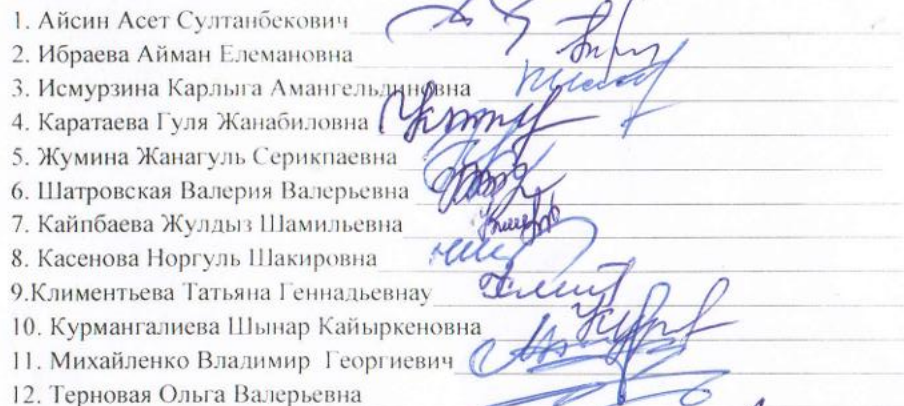 1. Айсин Асет Султанбекович
2. Ибраева Айман Елемановна
3. Исмурзина Карлыга Амангельдиновна
4. Каратаева Гуля Жанабиловна
5. Жумина Жанагуль Серикпаевна
6. Шатровская Валерия Валерьевна
7. Кайпбаева Жулдыз Шамильевна
8. Касенова Норгуль Шакировна
9.Климентьева Татьяна Геннадьевнау
10. Курмангалиева Шынар Кайыркеновна
11. Михайленко Владимир Георгиевич
12. Терновая Ольга Валерьевна